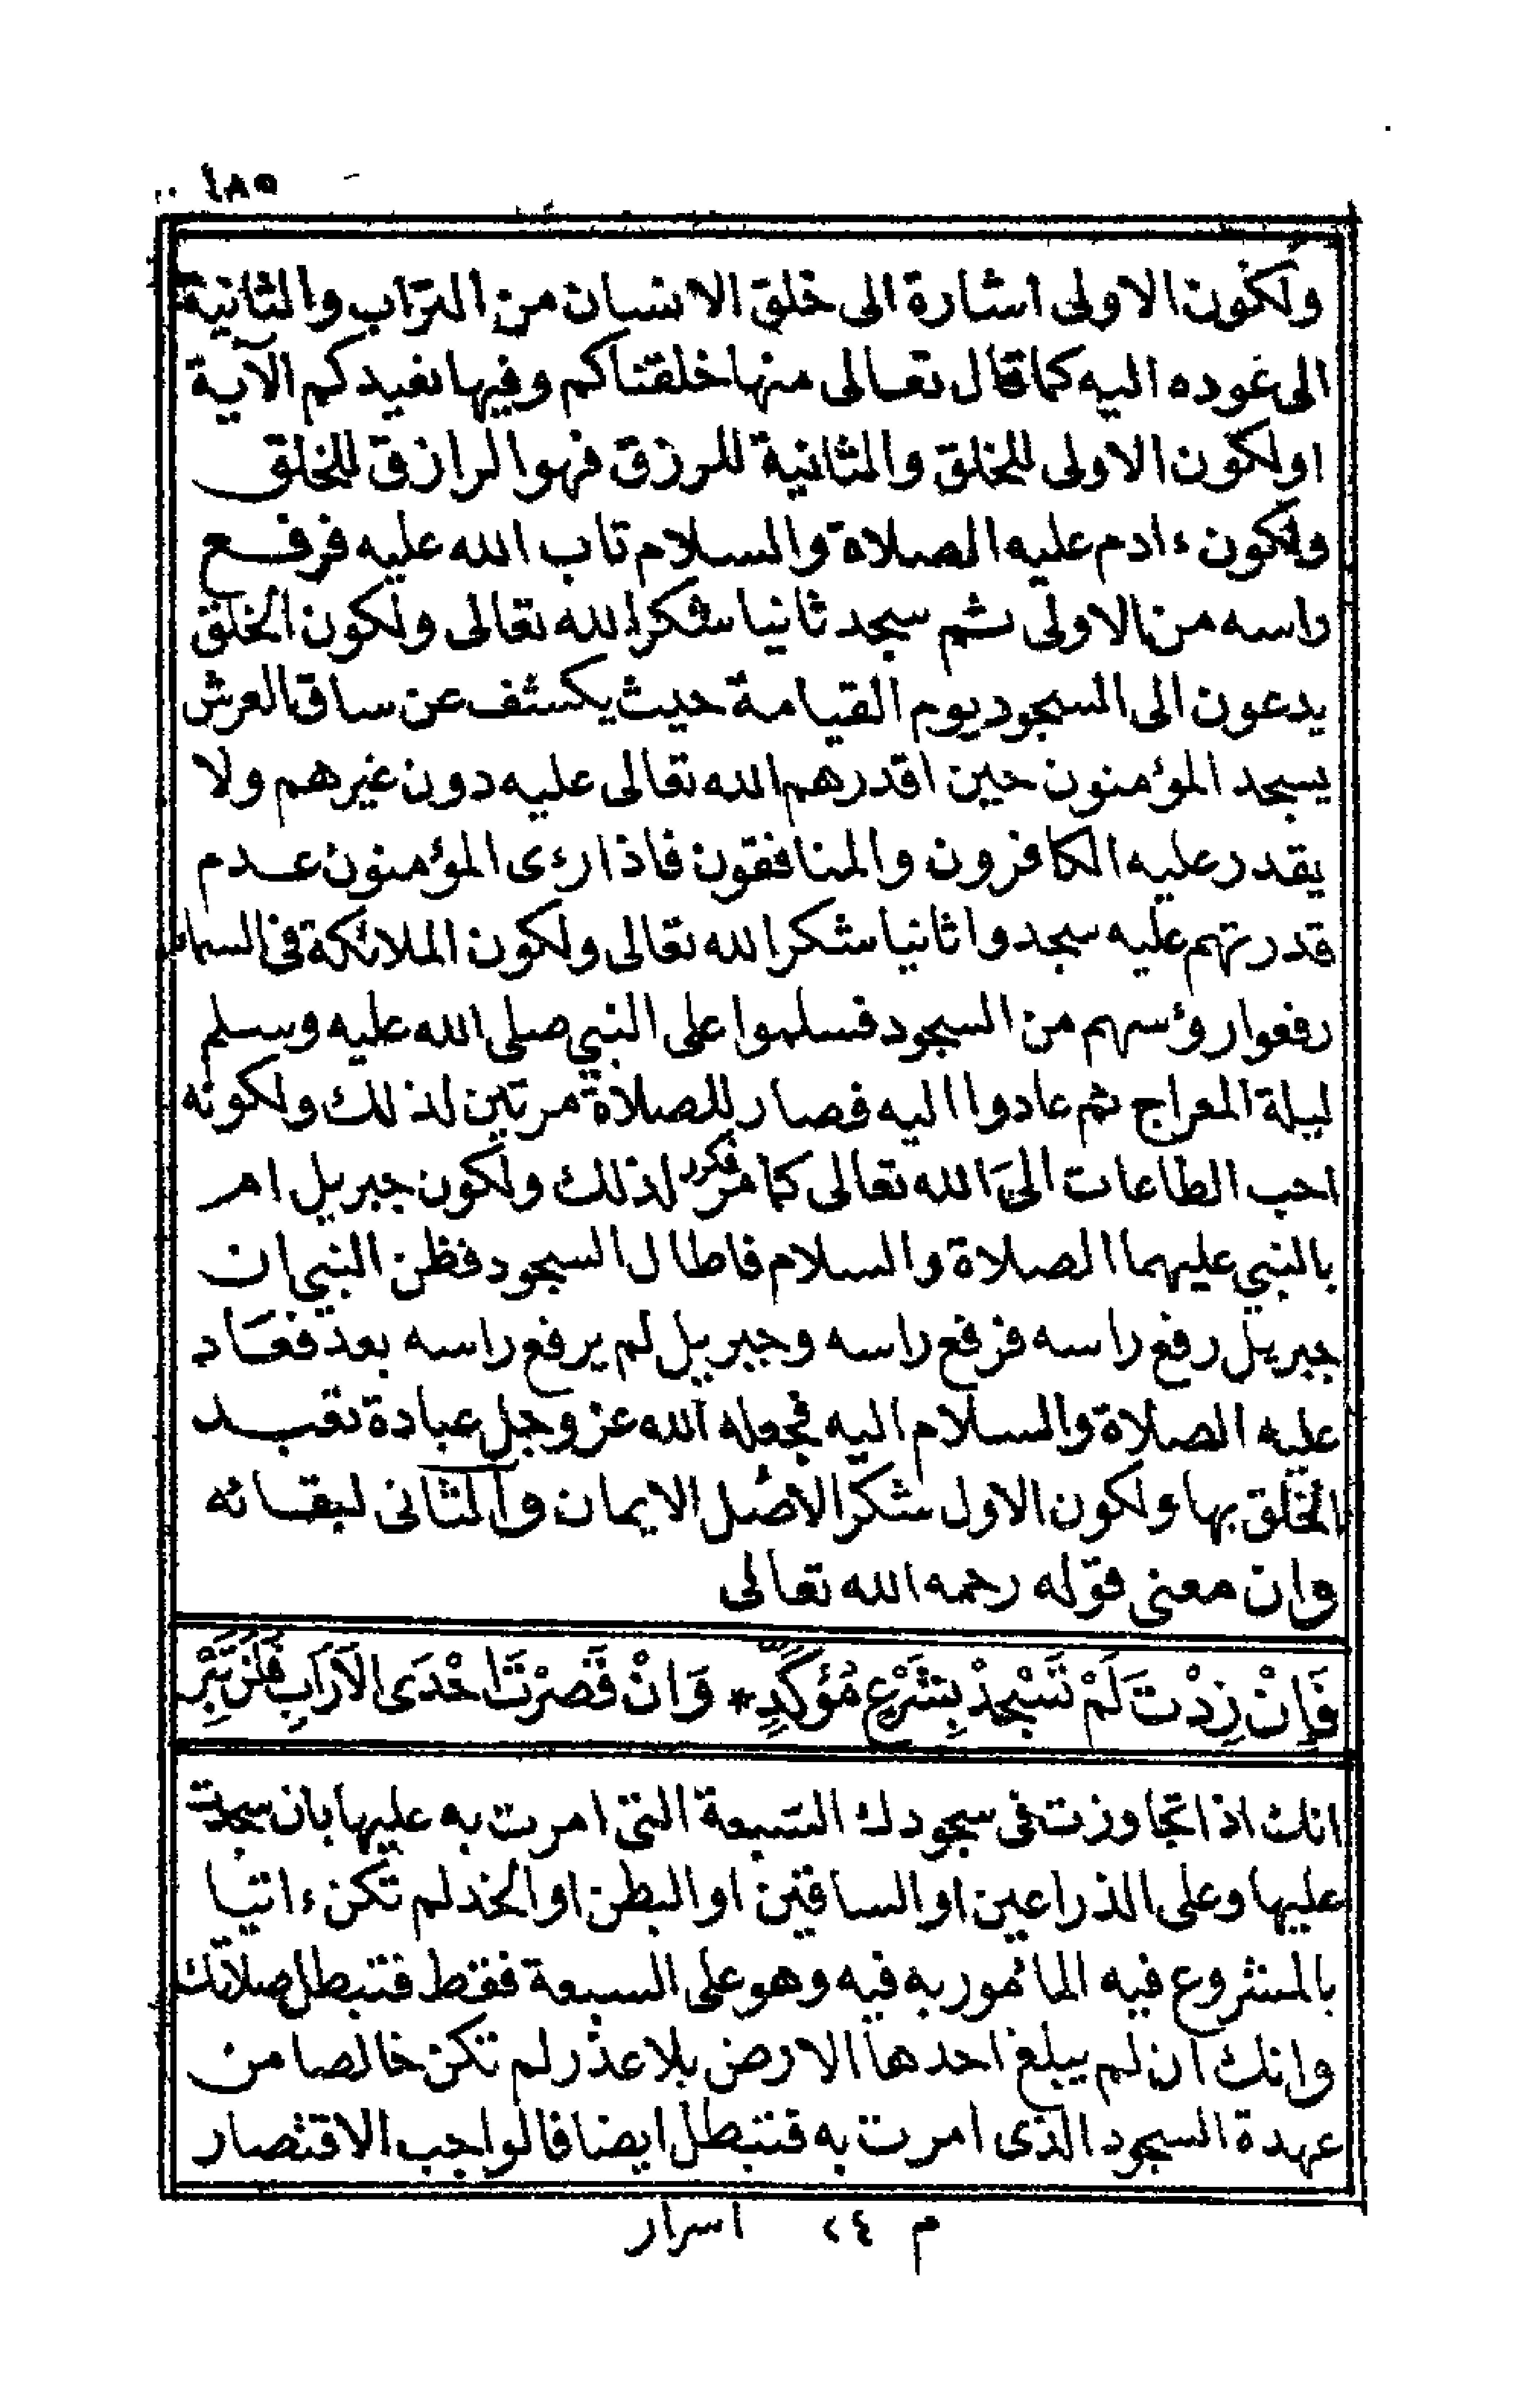 ١٨٥
ولكون الاولى اشارة الى خلق الانسان من التراب والثانية
الى عوده اليه كما قال تعالى منها خلقناكم وفيها نعيدكم الآية
او لكون الاولى للخلق والثانية للرزق فهو الرازق للخلق
ولكون ءادم عليه الصلاة والسلام تاب الله عليه فرفع
راسه من الاولى ثم سجد ثانيا شكرا لله تعالى ولكون الخلق
يدعون الى السجود يوم القيامة حيث يكشف عن ساق العرش
يسجد المؤمنون حين اقدرهم الله تعالى عليه دون غيرهم ولا
يقدر عليه الكافرون والمنافقون فاذا رءى المؤمنون عدم
قدرتهم عليه سجدوا ثانيا شكرا لله تعالى ولكون الملائكة في السماء
رفعوا رؤسهم من السجود فسلموا على النبي صلى الله عليه وسلم
ليلة المعراج ثم عادوا اليه فصار للصلاة مرتين لذلك ولكونه
احب الطاعات الى الله تعالى كما مر فكرر لذلك ولكون جبريل ام
بالنبي عليهما الصلاة والسلام فاطال السجود فظن النبي ان
جبريل رفع راسه فرفع راسه وجبريل لم يرفع راسه بعد فعاد
عليه الصلاة والسلام اليه فجعله الله عز وجل عبادة تعبد
الخلق بها ولكون الاول شكرا لاصل الايمان والثانى لبقائه
وان معنى قوله رحمه الله تعالى
فَاِنْ زِدْتَ لَمْ تَسْجُدْ بِشَرْعٍ مُؤَكَّدٍ * وَانْ قَصَرْتَ احْدَى الآرَابِ فَلَنْ تَبَرَّ
انك اذا تجاوزت فى سجودك السبعة التى امرت به عليها بان سجدت
عليها وعلى الذراعين او الساقين او البطن او الخد لم تكن ءاتيا
بالمشروع فيه المأمور به فيه وهو على السبعة فقط فتبطل صلاتك
وانك ان لم يبلغ احدها الارض بلا عذر لم تكن خالصا من
عهدة السجود الذى امرت به فتبطل ايضا فالواجب الاقتصار
م ٢٤ اسرار